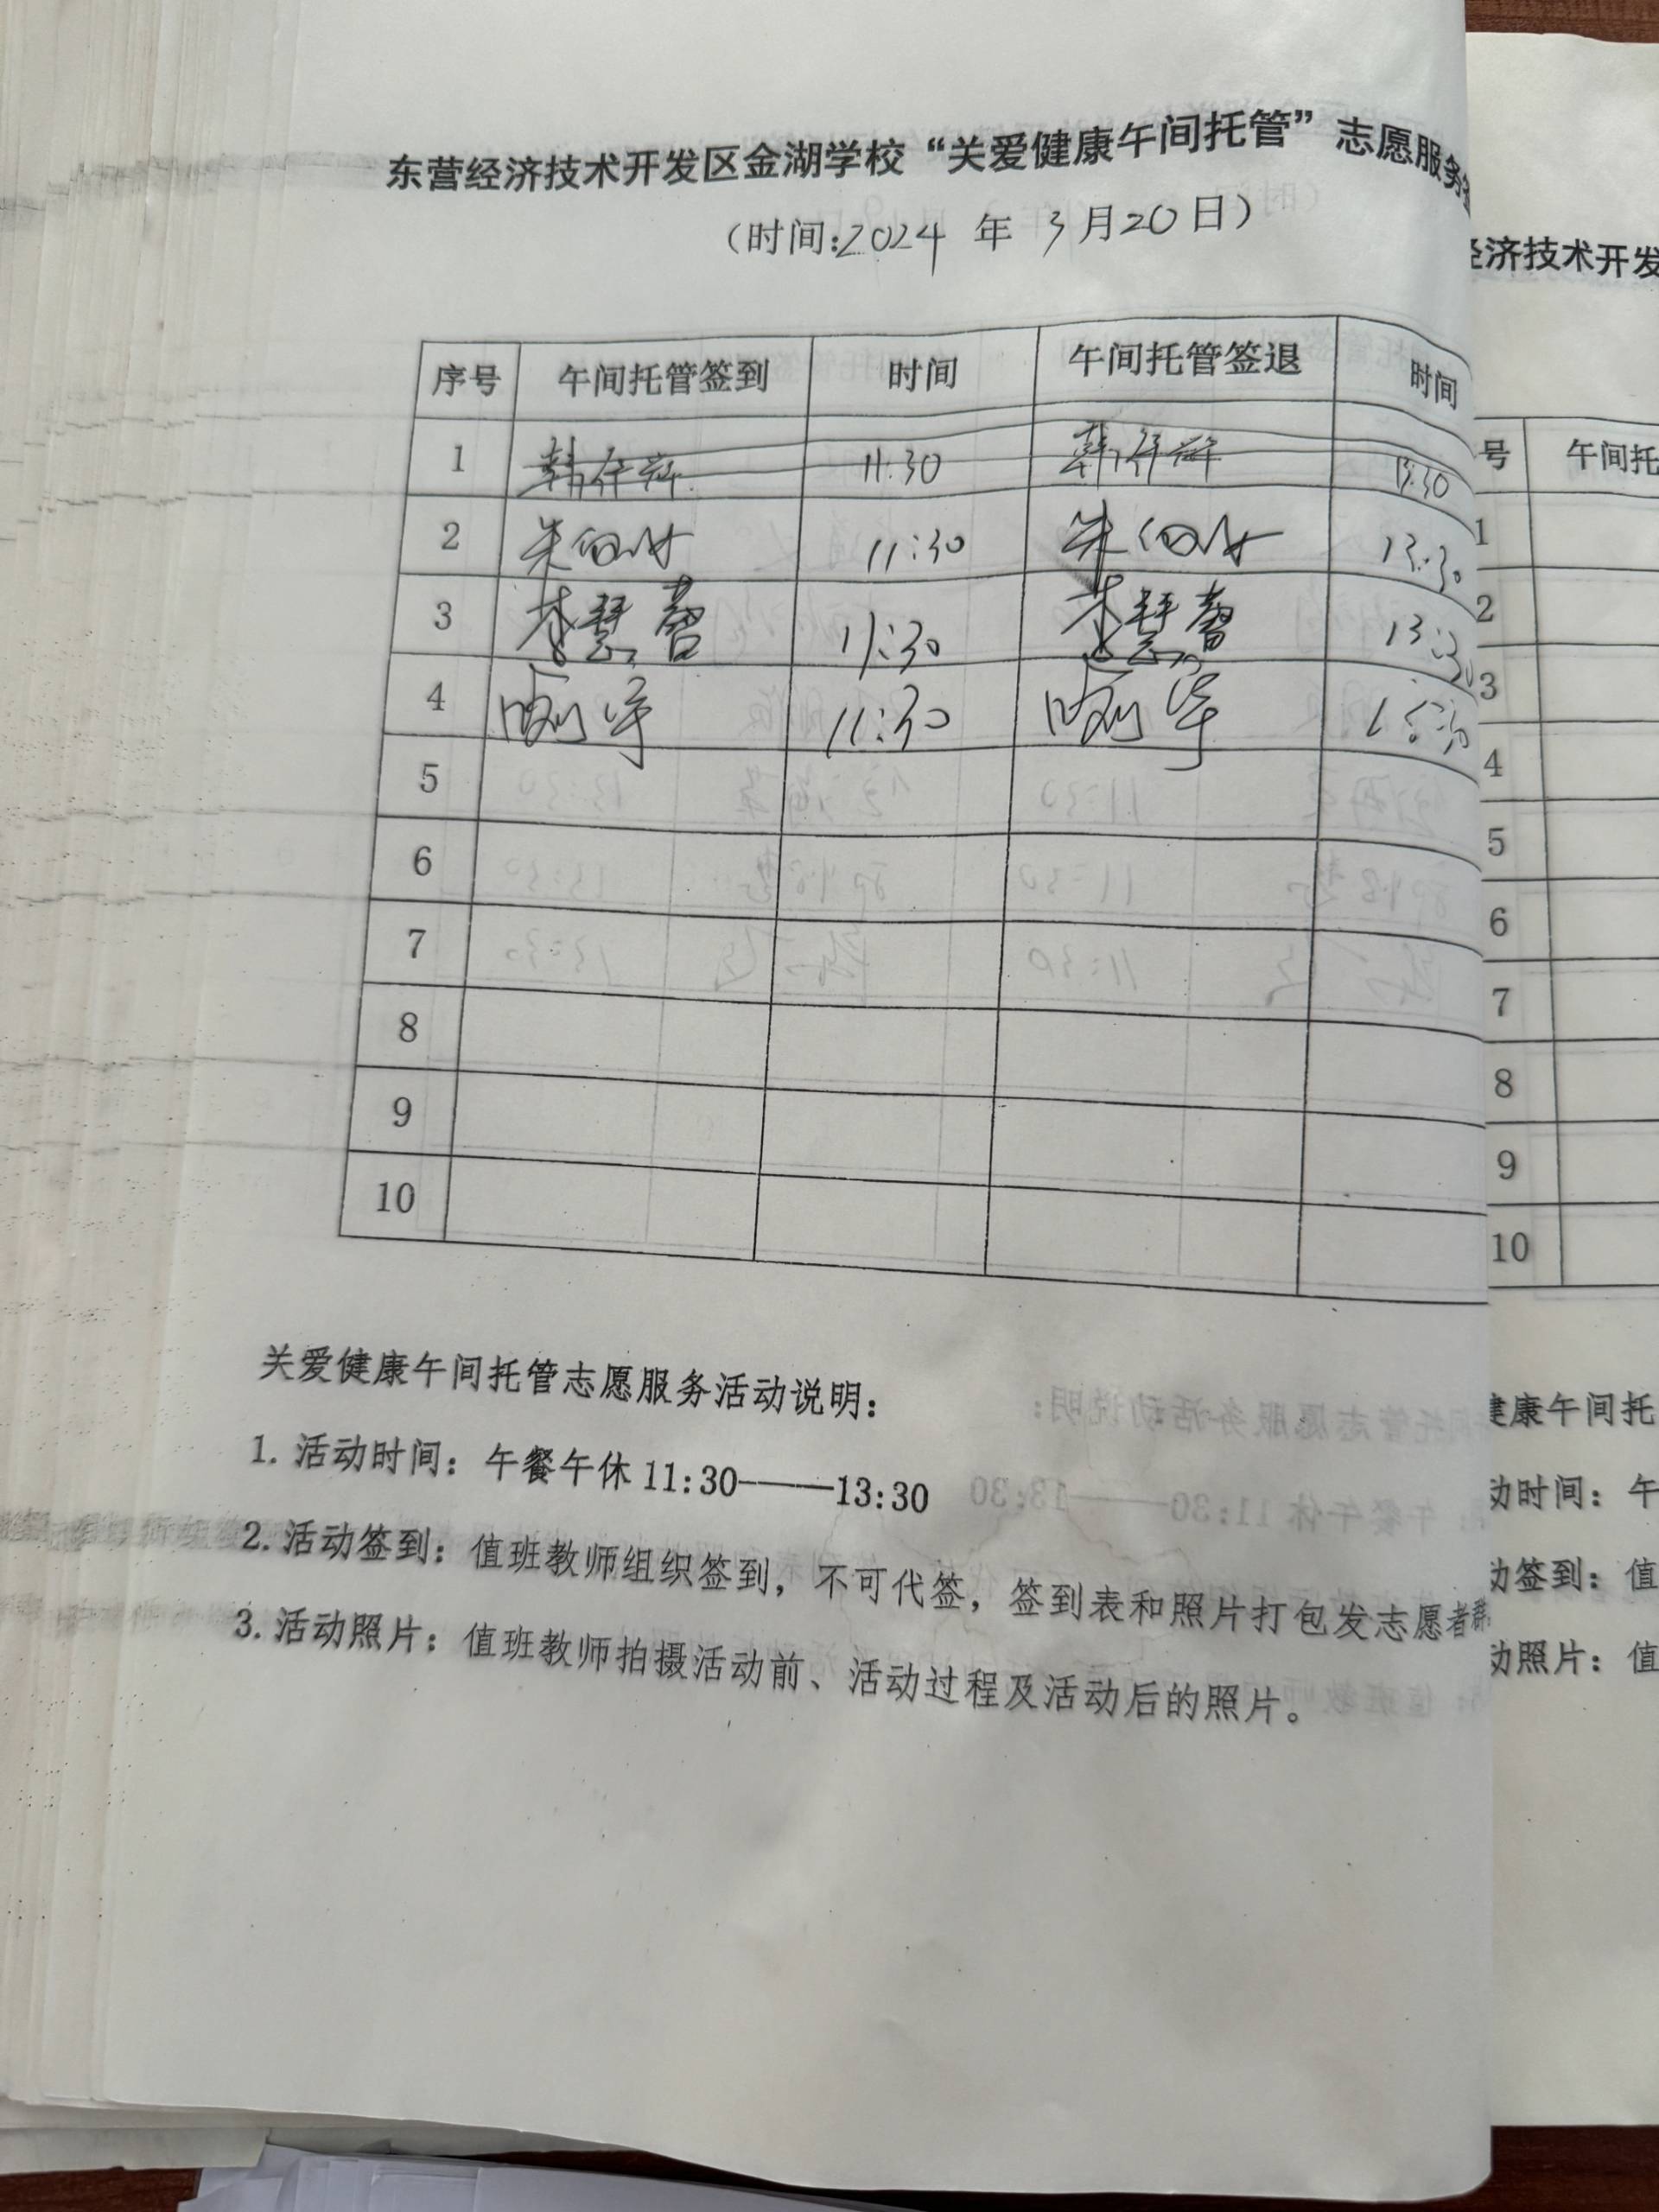 东营经济技术开发区金湖学校“关爱健康午间托管”志愿服务
(时间:2024 年 3月20日)
序号 午间托管签到 时间 午间托管签退 时间
1 11:30 13:30
2 11:30 13:30
3 李慧馨 11:30 李慧馨 13:30
4 11:30
5
6
7
8
9
10
关爱健康午间托管志愿服务活动说明:
1. 活动时间: 午餐午休 11:30——13:30
2. 活动签到: 值班教师组织签到, 不可代签, 签到表和照片打包发志愿者群
3. 活动照片: 值班教师拍摄活动前、活动过程及活动后的照片。
经济技术开发
号 午间托
1
2
3
4
5
6
7
8
9
10
健康午间托
动时间: 午
动签到: 值
动照片: 值